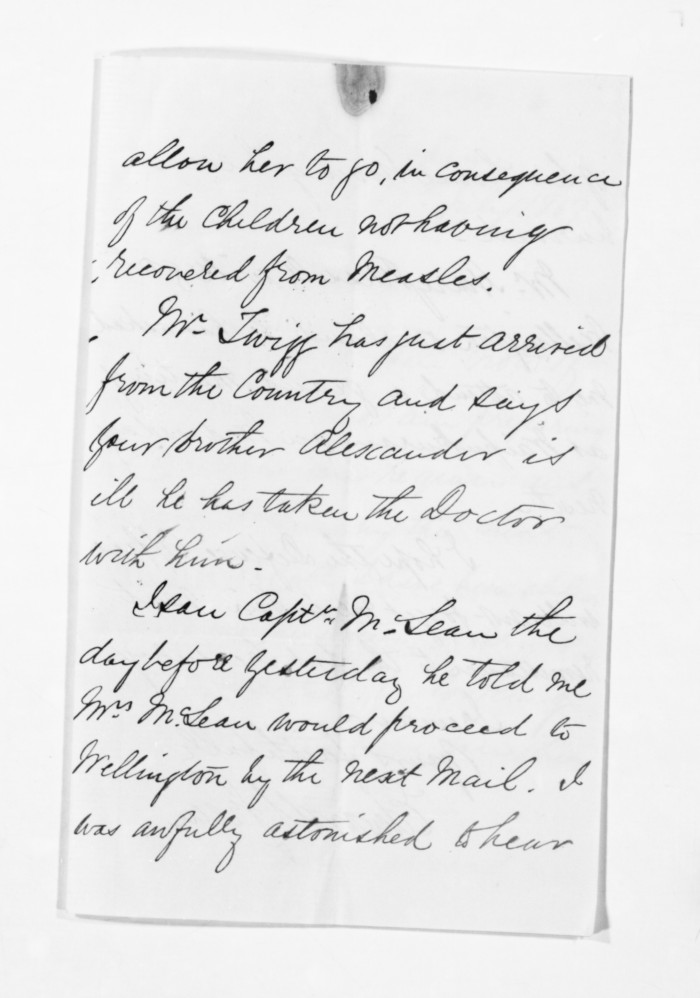 allow her to go, in consequence
of the Children not having
recovered from Measles.
Mr. Twigg has just arrived
from the Country and says
your brother Alexander is
ill he has taken the Doctor
with him.
I saw Captn. McLean the
day before yesterday he told me
Mrs McLean would proceed to
Wellington by the next Mail. I
was awfully astonished to hear